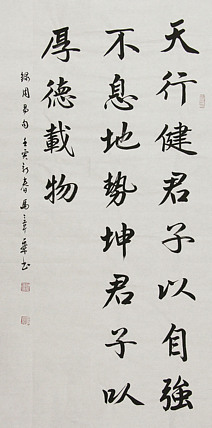 天行健君子以自強
不息地勢坤君子以
厚德載物
錄周易句壬寅初春馬